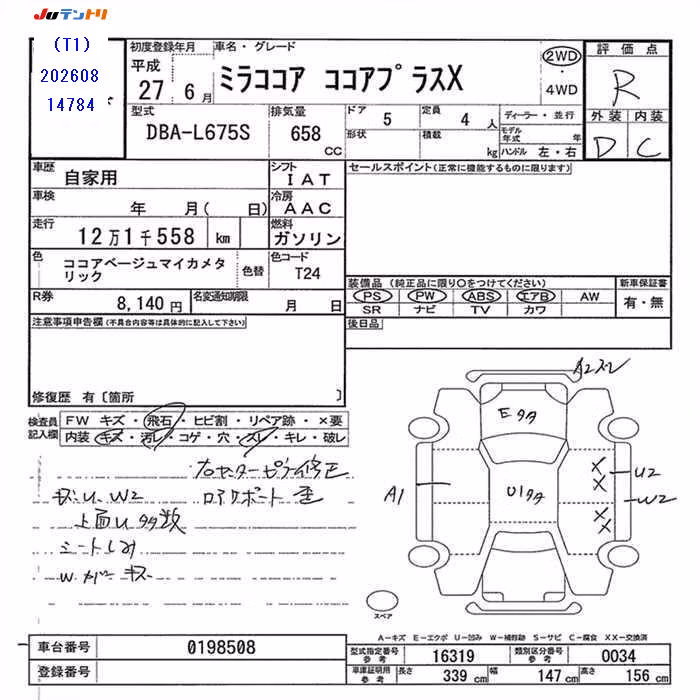 JUテントリ
(T1)
202608
14784
初度登録年月
平成
27 6月
車名・グレード
ミラココア ココアプラスX
2WD
・
4WD
評価点
R
外装 内装
D C
型式
DBA-L675S
排気量
658
cc
ドア 5
定員 4人
形状
積載 kg
ディーラー・並行
モデル年式 年
ハンドル 左・右
車歴 自家用
シフト IAT
車検 年 月( 日)
冷房 AAC
走行 12万1千558 km
燃料 ガソリン
色 ココアベージュマイカメタリック
色替
色コード T24
R券 8,140円
名変通知期限 月 日
セールスポイント(正常に機能するものに限ります)
装備品(純正品に限り○をつけてください)
PS PW ABS エアB AW
SR ナビ TV カワ
新車保証書
有・無
後日品
注意事項申告欄(不具合内容等は具体的に記入して下さい)
修復歴 有〔箇所 〕
検査員記入欄
FW キズ・飛石・ヒビ割・リペア跡・×要
内装・キズ・汚レ・コゲ・穴・スレ・キレ・破レ
右センターピラー修正
キズ、U、W2
上面U多数
シートしみ
A2スレ
Eタタ
U1タタ
A1
U2
W2
XX
XX
スペア
A－キズ E－エクボ U－凹み W－補修跡 S－サビ C－腐食 XX－交換済
車台番号 0198508
登録番号
型式指定番号 参考 16319
類別区分番号 参考 0034
車庫証明用 参考 長さ 339 cm 幅 147 cm 高さ 156 cm